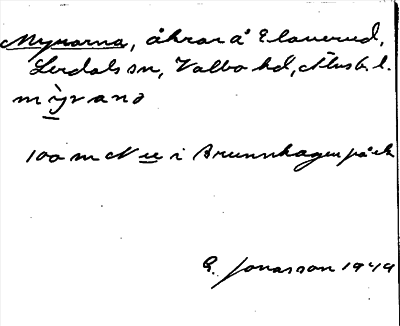 Myrarna, åkrar å Elaverud,
Lerdals sn, Valbo hd, Älvsb. l.
mỳrand
100 m N u i Brunnhagen på ek
G. Jonasson 1949